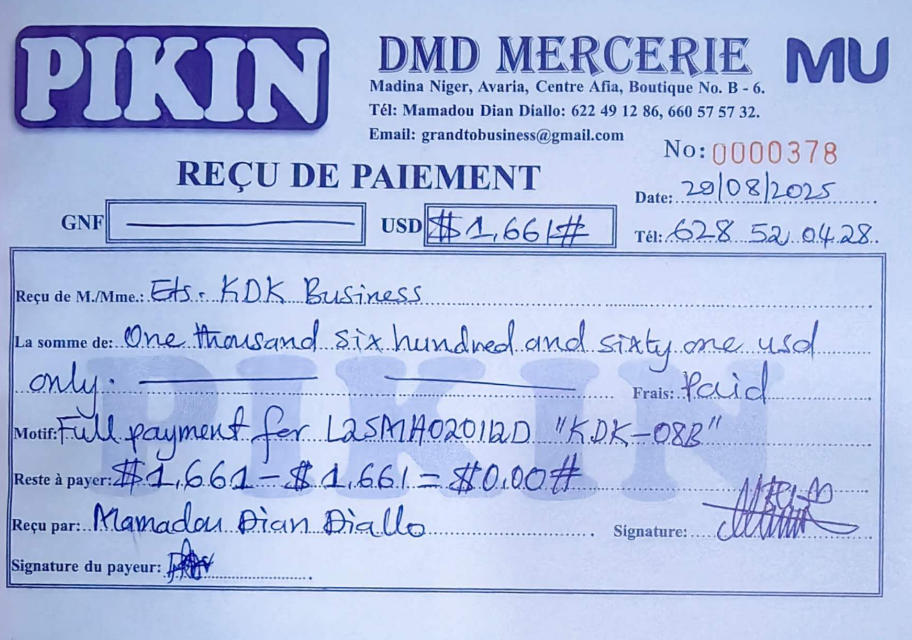 PIKIN
DMD MERCERIE
MU
Madina Niger, Avaria, Centre Afia, Boutique No. B - 6.
Tél: Mamadou Dian Diallo: 622 49 12 86, 660 57 57 32.
Email: grandtobusiness@gmail.com
No: 0000378
REÇU DE PAIEMENT
Date: 29/08/2025
GNF
USD $1,661#
Tél: 628 52 04 28
Reçu de M./Mme.: Ets. KDK Business
La somme de: One thousand six hundred and sixty one usd
only. Frais: Paid
Motif: Full payment for "KDK-08B"
Reste à payer: $1,661 - $1,661 = $0.00#
Reçu par: Mamadou Dian Diallo Signature:
Signature du payeur:
PIKIN